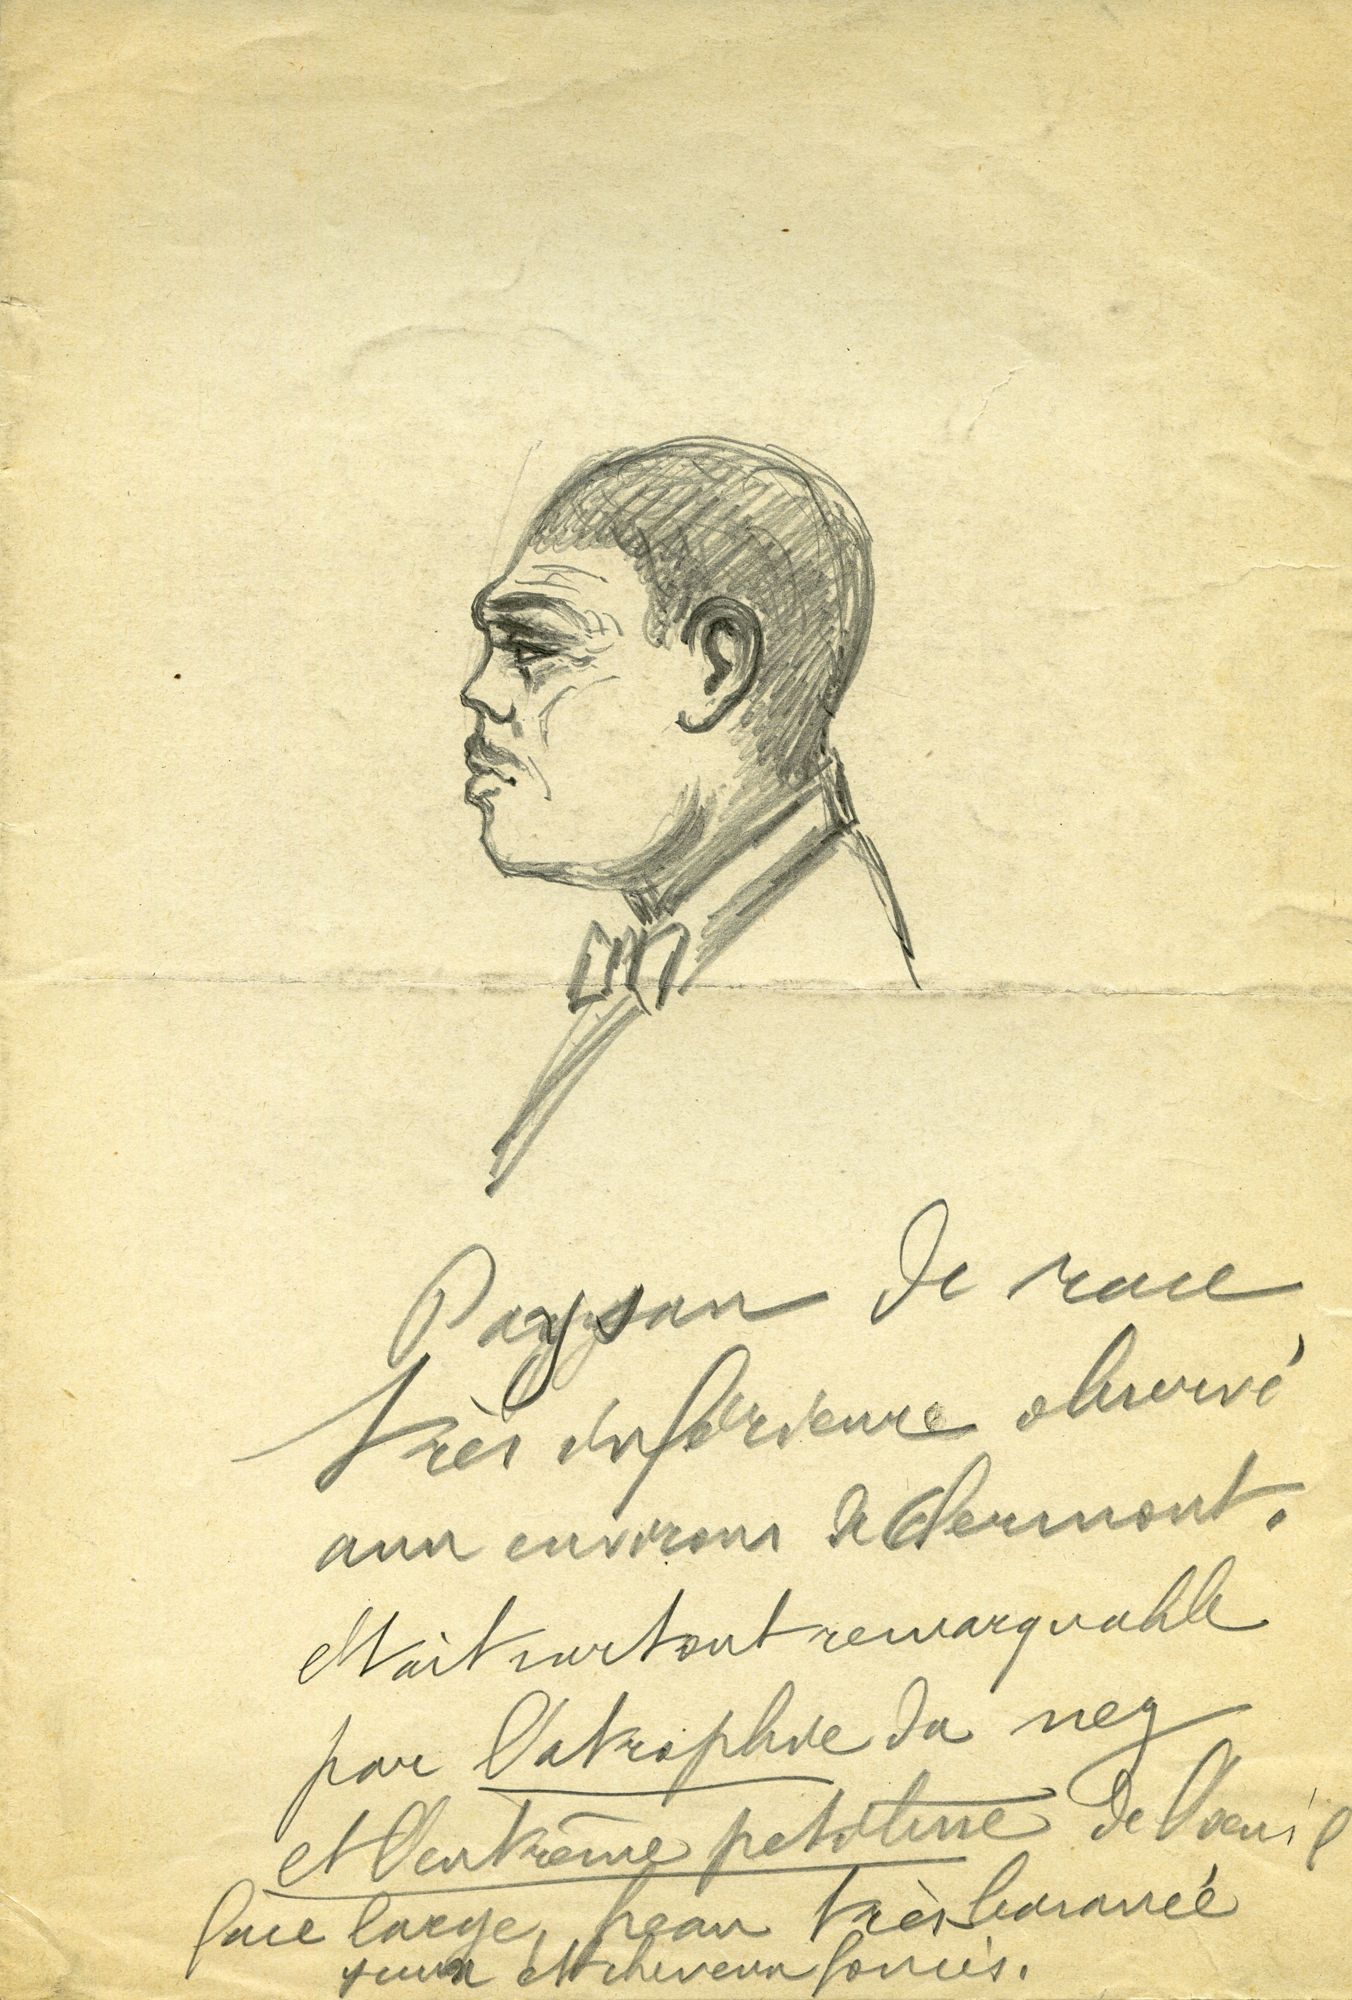 Paysan de race
très inférieure observé
aux environs de Clermont.
était surtout remarquable
par l'atrophie du nez
et l'extrême petitesse de l'œuil
face large, peau très basanée
yeux et cheveux foncés.